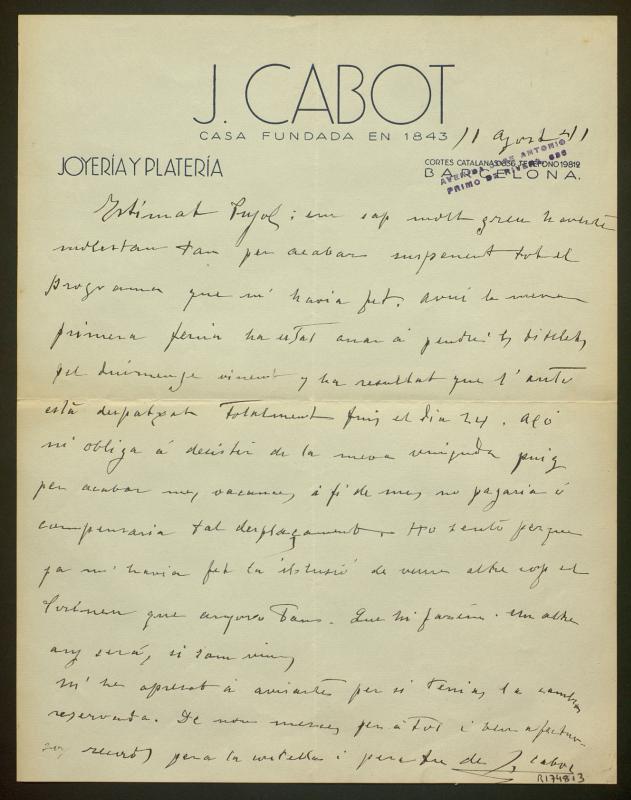 J. CABOT
CASA FUNDADA EN 1843
11 agost 41
JOYERÍA Y PLATERÍA
CORTES CATALANAS 636, TELÉFONO 19812
BARCELONA.
AVENIDA JOSÉ ANTONIO
PRIMO DE RIVERA 636
Estimat Pujol: em sap molt greu haverte
molestar tan per acabar suspenent tot el
programa que m' havia fet. Avui la meva
primera feina ha estat anar á pendre 'ls bitllets
pel diumenge vinent y ha resultat que l' auto
está despatxat totalment fins el dia 24. Açó
m' obliga á desistir de la meva vinguda puig
per acabar mes vacances á fi de mes no pagaria ó
compensaria tal desplaçament. Ho sento perque
ja m' havia fet la il·lusió de veure altre cop el
que anyoro tant. Que hi farém. un altre
any será, si som vius
M' he apresat á avisarte per si tenias la cambra
reservada. De nou merces per á tot i ben afectuo-
sos records para la i para tu de J. Cabot
R.174813